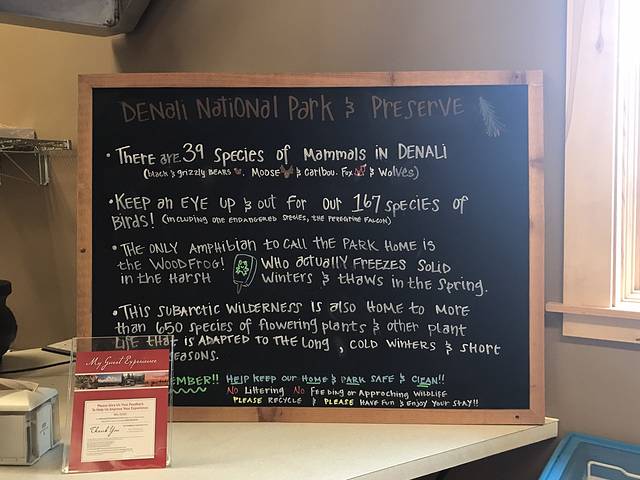 DENALI NATIONAL PARK & PRESERVE
• THERE ARE 39 SPECIES of MAMMALS IN DENALI
(black & grizzly BEARS, MOOSE & CARIBOU. FOX & WOLVES)
• KEEP AN EYE UP & OUT FOR OUR 167 SPECIES OF
BIRDS! (INCLUDING ONE ENDANGERED SPECIES, THE PEREGRINE FALCON)
• THE ONLY AMPHIBIAN TO CALL THE PARK HOME IS
the WOODFROG! WHO actually FREEZES SOLID
in the HARSH WINTERS & THAWS in the SPRING.
• THIS SUBARCTIC WILDERNESS IS also HOME to MORE
than 650 species of flowering plants & other plant
LIFE that IS ADAPTED TO THE LONG, COLD WINTERS & SHORT
EASONS.
EMBER!! HELP KEEP OUR HOME & PARK SAFE & CLEAN!!
NO LITTERING NO FEEDING or APPROCHING WILDLIFE
PLEASE RECYCLE & PLEASE HAVE FUN & ENJOY YOUR STAY!!
My Guest Experience
Please Give Us Your Feedback
To Help Us Improve Your Experience
Thank You